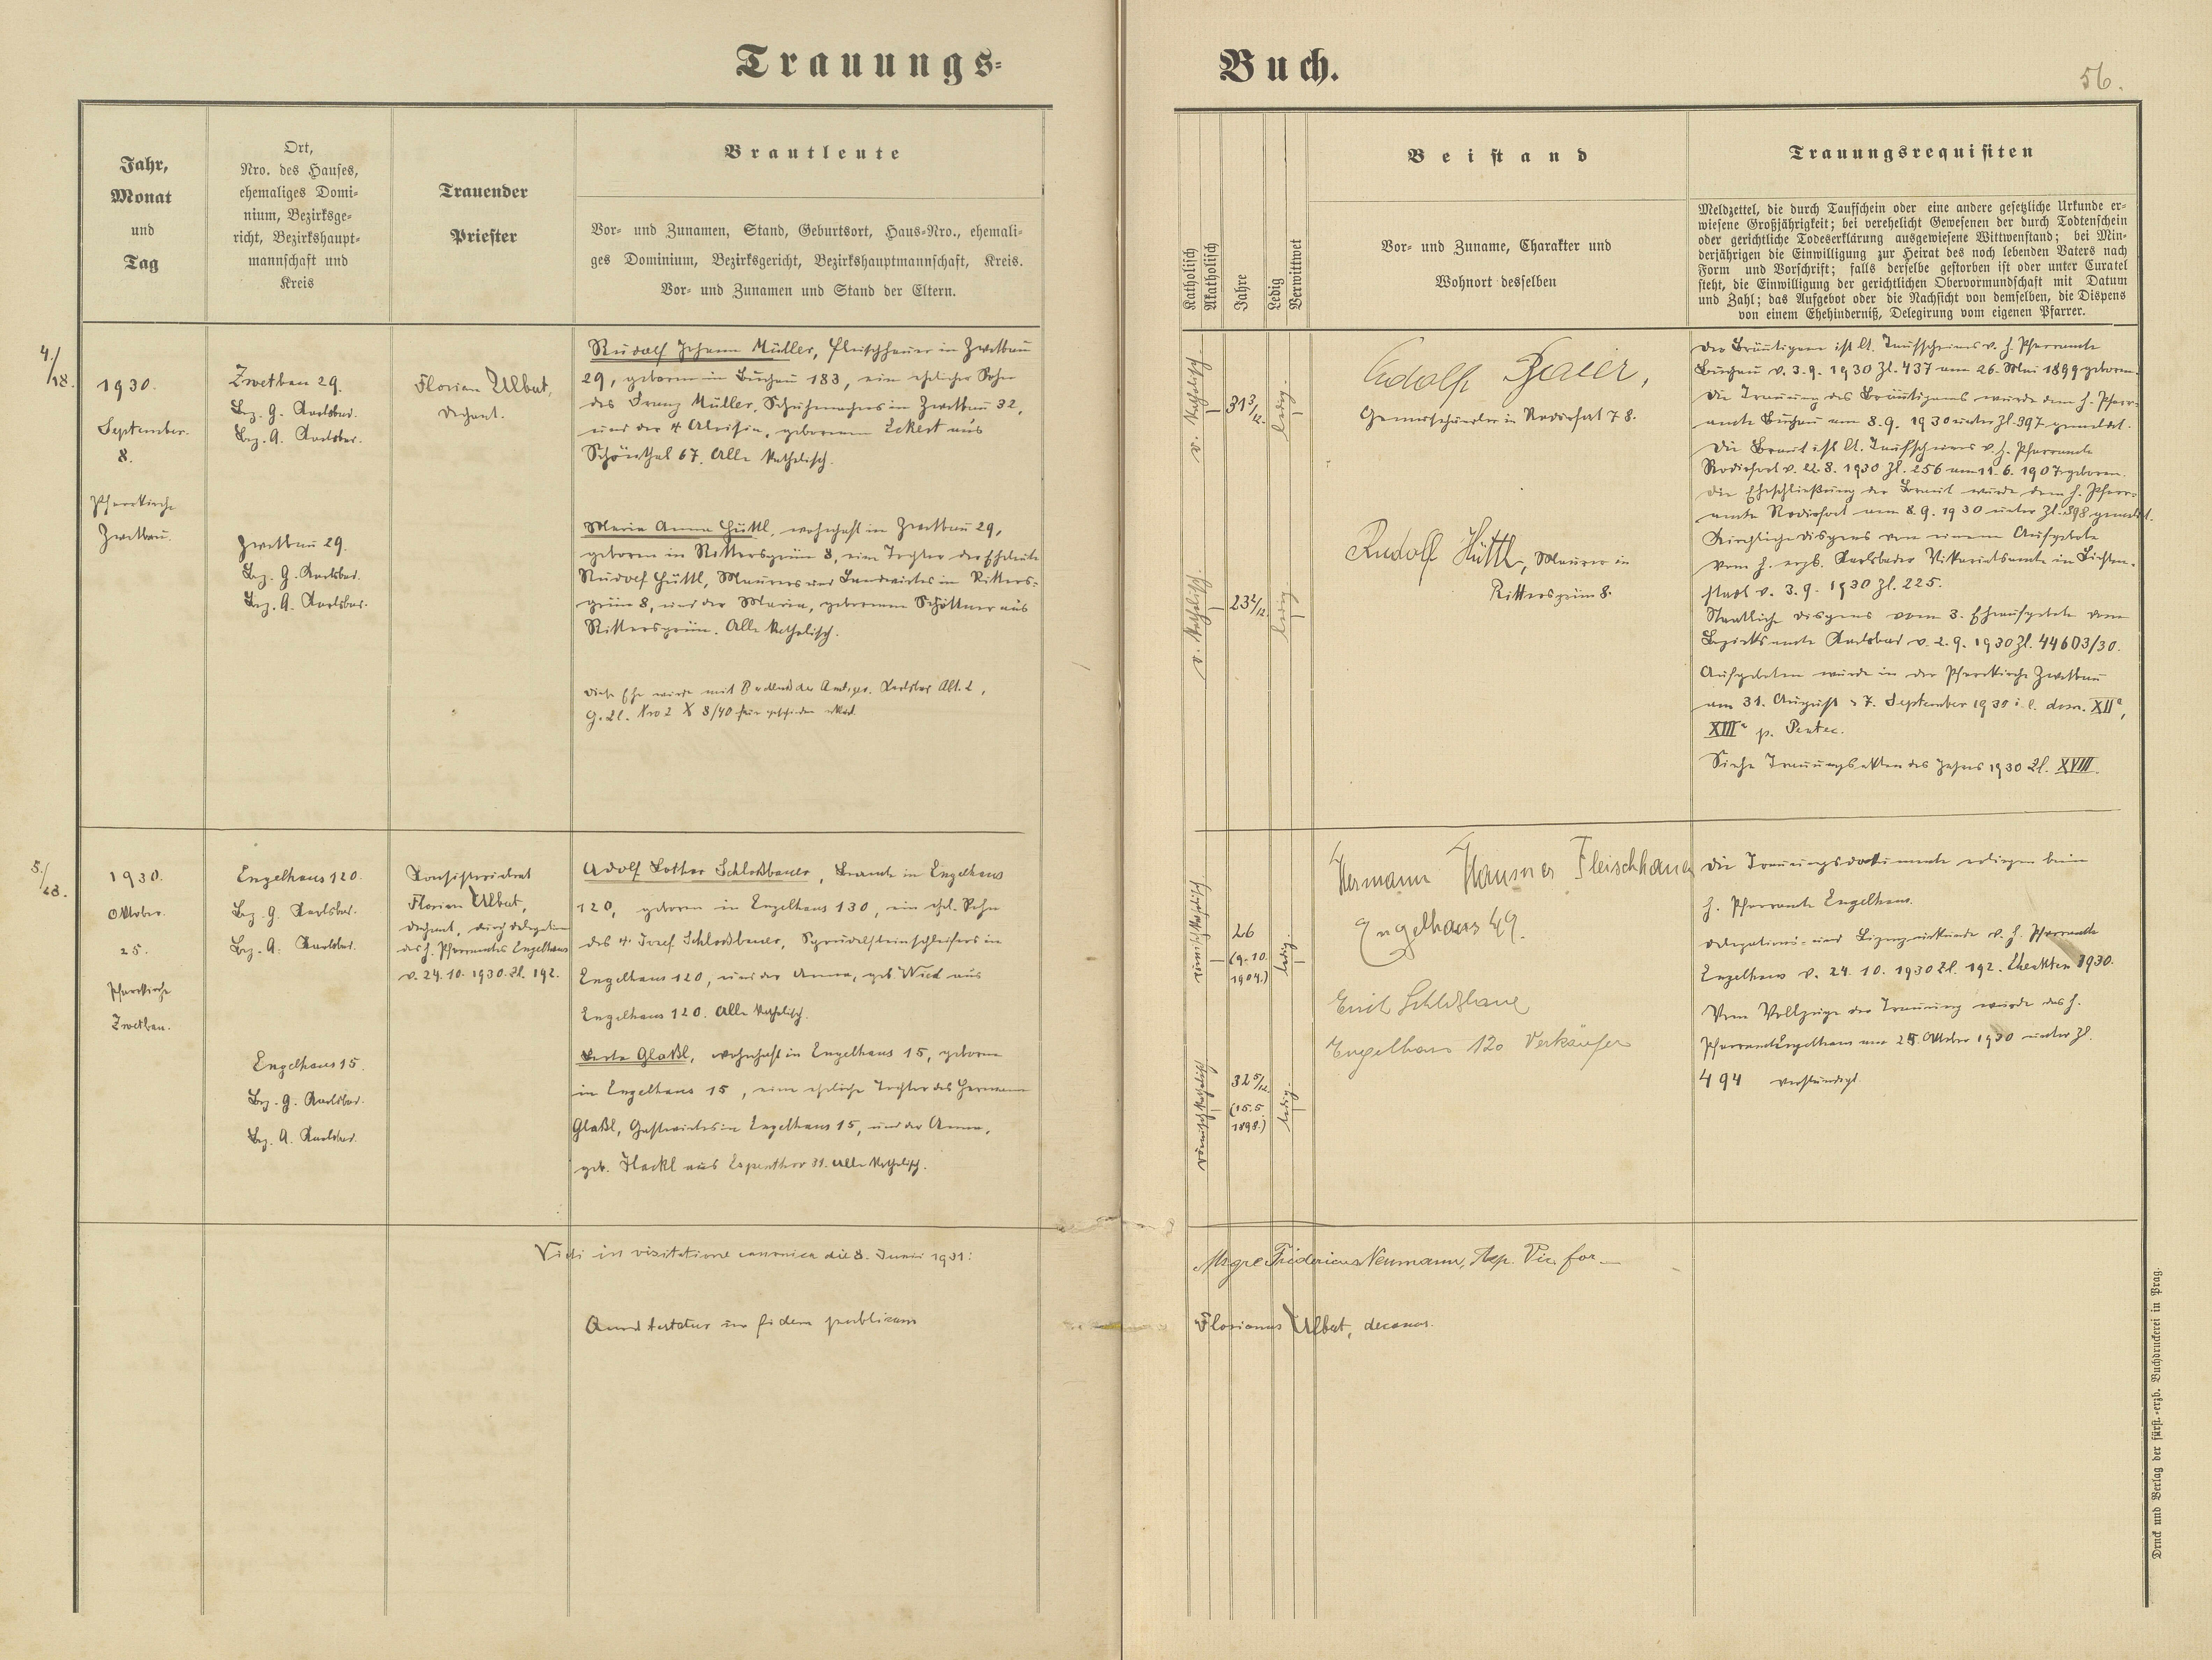 Trauungs-
Buch.
56.
Jahr,
Monat
und
Tag
Ort,
Nro. des Hauses,
ehemaliges Domi-
nium, Bezirksge-
richt, Bezirkshaupt-
mannschaft und
Kreis
Trauender
Priester
Brautleute
Vor- und Zunamen, Stand, Geburtsort, Haus-Nro., ehemali-
ges Dominium, Bezirksgericht, Bezirkshauptmannschaft, Kreis.
Vor- und Zunamen und Stand der Eltern.
Katholisch
Akatholisch
Jahre
Ledig
Verwittwet
Beistand
Vor- und Zuname, Charakter und
Wohnort desselben
Trauungsrequisiten
Meldzettel, die durch Taufschein oder eine andere gesetzliche Urkunde er-
wiesene Großjährigkeit; bei verehelicht Gewesenen der durch Todtenschein
oder gerichtliche Todeserklärung ausgewiesene Wittwenstand; bei Min-
derjährigen die Einwilligung zur Heirat des noch lebenden Vaters nach
Form und Vorschrift; falls derselbe gestorben ist oder unter Curatel
steht, die Einwilligung der gerichtlichen Obervormundschaft mit Datum
und Zahl; das Aufgebot oder die Nachsicht von demselben, die Dispens
von einem Ehehinderniß, Delegirung vom eigenen Pfarrer.
4./
18.
1930.
September.
8.
Pfarrkirche
Zwetbau.
Zwetbau 29.
Bez. G. Karlsbad.
Bez. A. Karlsbad.
Zwetbau 29.
Bez. G. Karlsbad.
Bez. A. Karlsbad.
Florian Ulbert,
Dechant.
Rudolf Johann Müller, Fleischhauer in Zwetbau
29, geboren in Buchau 183, ein ehelicher Sohn
des Franz Müller, Schuhmachers in Zwetbau 32,
und der † Aloisia, geborenen Eckert aus
Schönthal 67. Alle katholisch.
Maria Anna Hüttl, wohnhaft in Zwetbau 29,
geboren in Rittersgrün 8, eine Tochter der Eheleute
Rudolf Hüttl, Maurers und Landwirtes in Ritters-
grün 8, und der Maria, geborenen Schöttner aus
Rittersgrün. Alle katholisch.
Diese Ehe wurde mit Beschluß des Amtsger. Karlsbad Abt. 2,
G. Zl. Nro 2 X 8/40 für geschieden erklärt.
r. katholisch
31 3/12.
ledig.
r. katholisch.
23 2/12.
ledig.
Rudolf Baier,
Gemischwarenh. in Rodisfort 78.
Rudolf Hüttl, Maurer in
Rittersgrün 8.
Der Bräutigam ist lt. Taufscheines v. h. Pfarramte
Buchau v. 3. 9. 1930 Zl. 437 am 26. Mai 1899 geboren.
Die Trauung des Bräutigams wurde dem h. Pfarr-
amte Buchau am 8. 9. 1930 unter Zl. 397 gemeldet.
Die Braut ist lt. Taufscheines v. h. Pfarramte
Rodisfort v. 22. 8. 1930 Zl. 256 am 11. 6. 1907 geboren.
Die Eheschließung der Braut wurde dem h. Pfarr-
amte Rodisfort am 8. 9. 1930 unter Zl. 398 gemeldet.
Kirchliche Dispens von einem Aufgebote
vom h. erzb. Karlsbader Vikariatsamte in Lichten-
stadt v. 3. 9. 1930 Zl. 225.
Staatliche Dispens vom 3. Eheaufgebote vom
Bezirksamte Karlsbad v. 2. 9. 1930 Zl. 44603/30.
Aufgeboten wurde in der Pfarrkirche Zwetbau
am 31. August u. 7. September 1930 i. e. dom. XIIa,
XIIIa p. Pentec.
Siehe Trauungsakten des Jahres 1930 Zl. XVIII.
5./
28.
1930.
Oktober.
25.
Pfarrkirche
Zwetbau.
Engelhaus 120.
Bez. G. Karlsbad.
Bez. A. Karlsbad.
Engelhaus 15.
Bez. G. Karlsbad.
Bez. A. Karlsbad.
Konsistorialrat
Florian Ulbert,
Dechant, durch Delegation
des h. Pfarramtes Engelhaus
v. 24. 10. 1930 Zl. 192.
Adolf Lothar Schloßbauer, Beamte in Engelhaus
120, geboren in Engelhaus 130, ein ehel. Sohn
des † Josef Schloßbauer, Sprudelsteinschleifers in
Engelhaus 120, und der Anna, geb. Wied aus
Engelhaus 120. Alle katholisch.
Berta Glaßl, wohnhaft in Engelhaus 15, geboren
in Engelhaus 15, eine eheliche Tochter des Hermann
Glaßl, Gastwirtes in Engelhaus 15, und der Anna,
geb. Hackl aus Espenthor 31. Alle katholisch.
römisch katholisch
26
(9. 10.
1904.)
ledig.
römisch katholisch
32 5/12.
(15. 5.
1898.)
ledig.
Hermann Hausner Fleischhauer
Engelhaus 49.
Erich Schloßbauer
Engelhaus 120 Verkäufer
Die Trauungsdokumente erliegen beim
h. Pfarramte Engelhaus.
Delegations- und Lizenzurkunde v. h. Pfarramte
Engelhaus v. 24. 10. 1930 Zl. 192. Eheakten 1930.
Vom Vollzuge der Trauung wurde das h.
Pfarramt Engelhaus am 25. Oktober 1930 unter Zl.
494 verständigt.
Vidi in visitatione canonica die 8. Junii 1931:
Msgre Fridericus Neumann, Aep. Vic. for.
Quod testatur in fidem publicam
Florianus Ulbert, decanus.
Druck und Verlag der fürst.-erzb. Buchdruckerei in Prag.